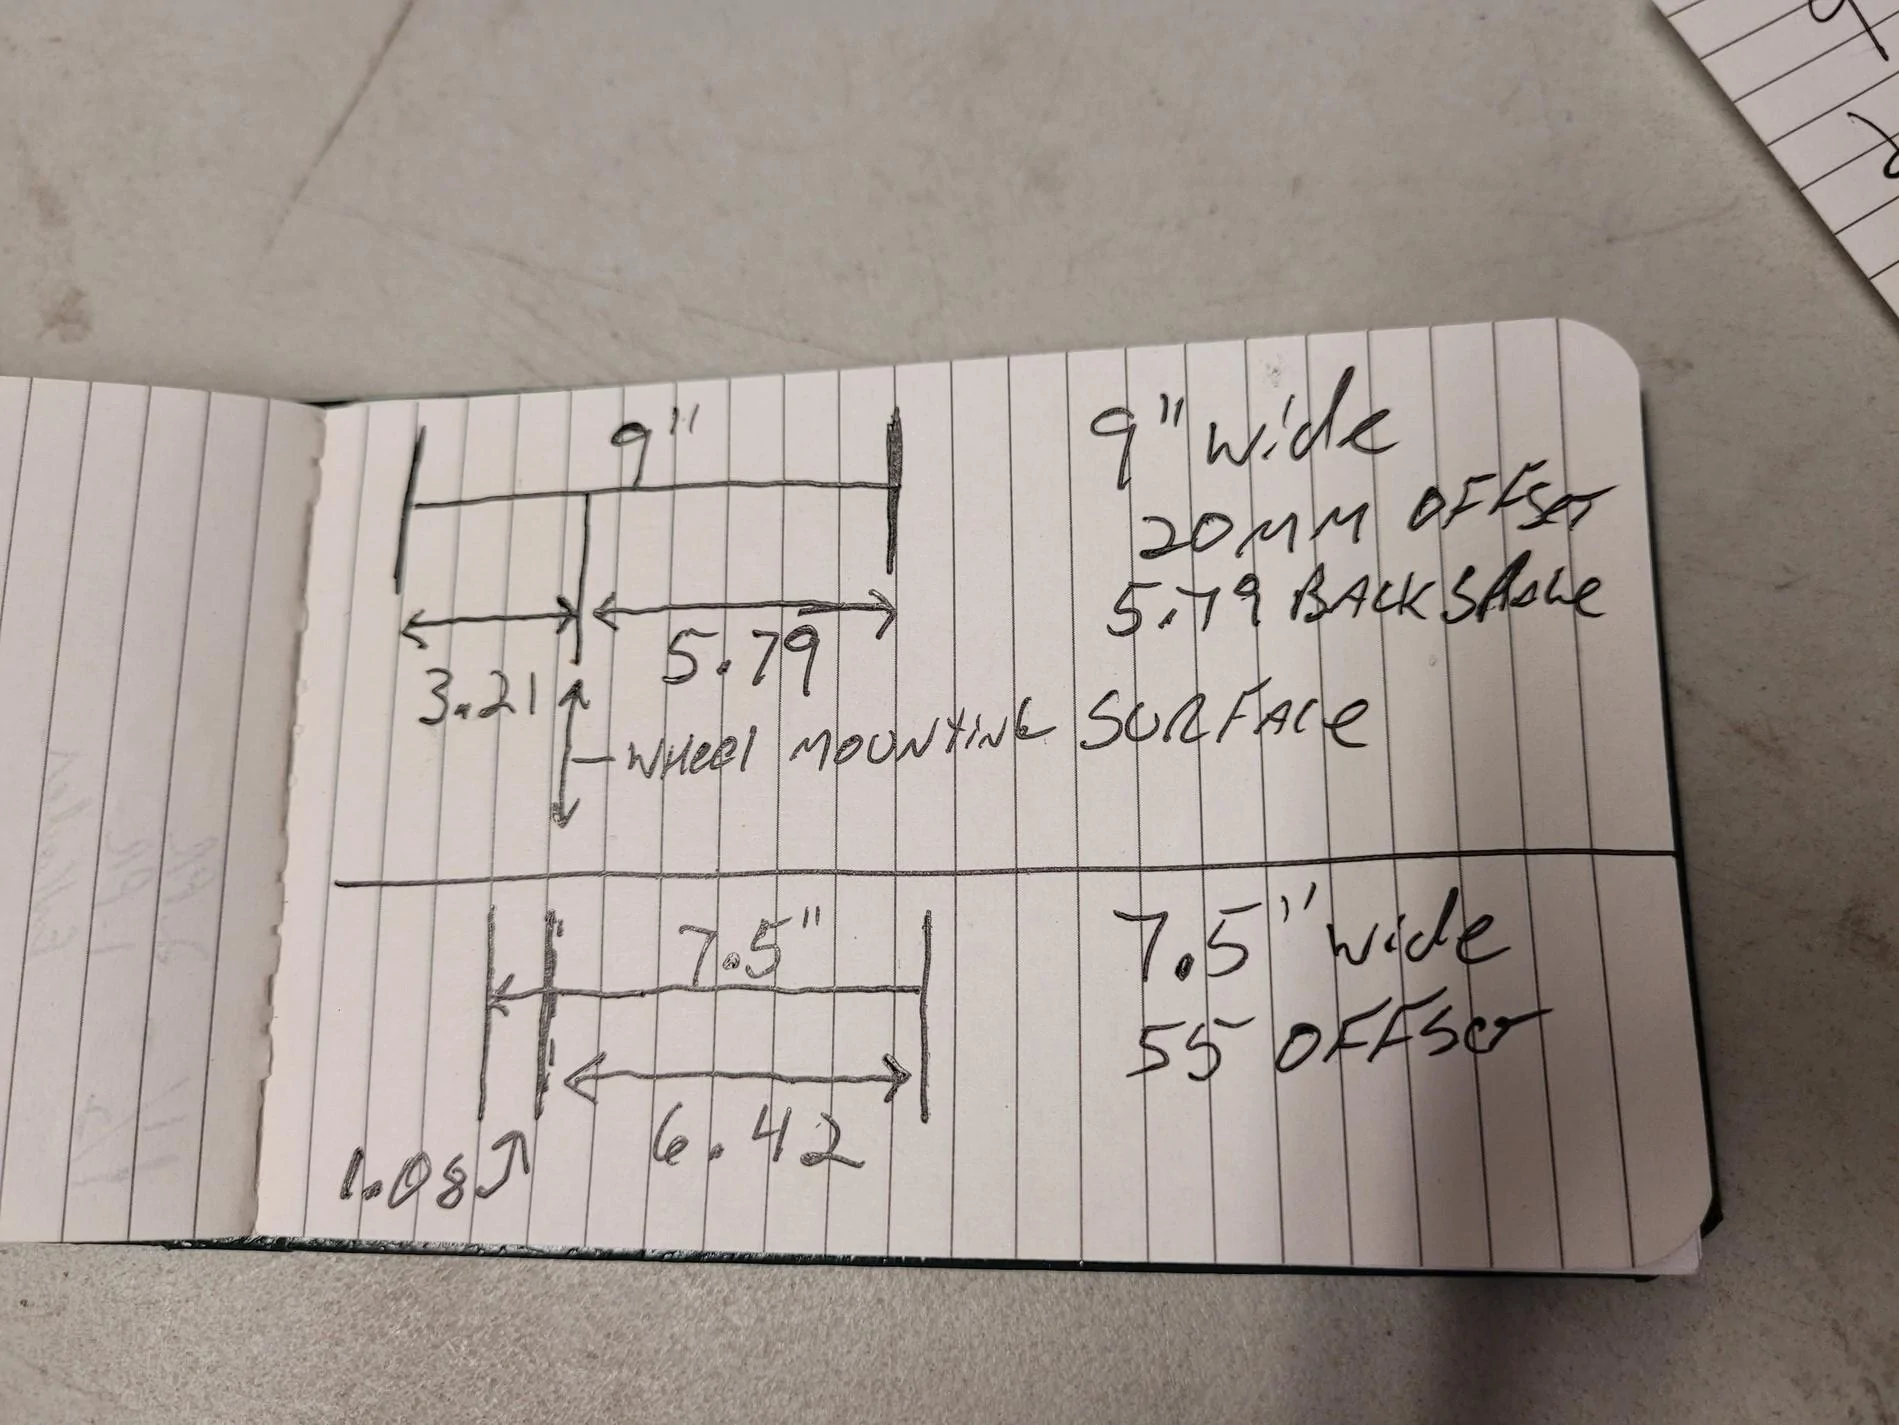 9"
9" wide
20MM OFFSET
5.79 BACKSPACE
3.21
5.79
WHEEL MOUNTING SURFACE
7.5"
7.5" wide
55 OFFSET
6.42
1.08